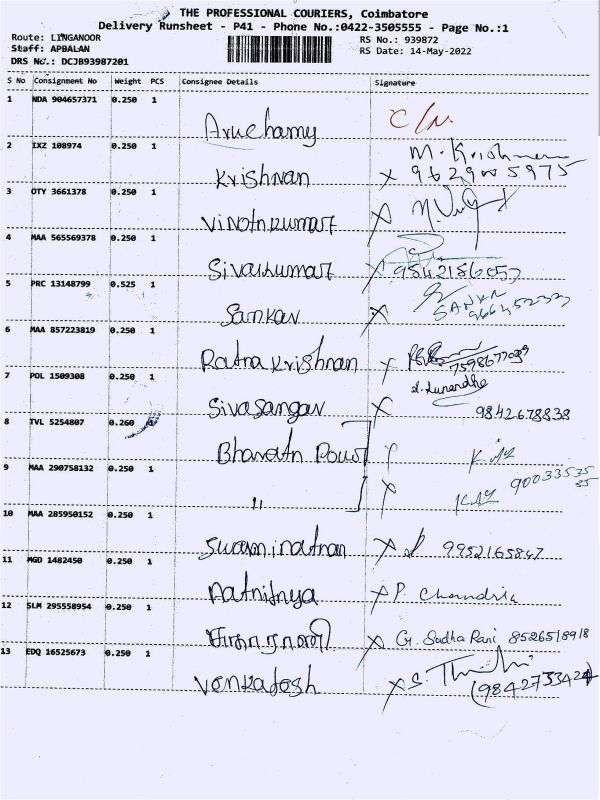 THE PROFESSIONAL COURIERS, Coimbatore
Delivery Runsheet - P41 - Phone No.:0422-3505555 - Page No.:1
Route: LINGANOOR
RS No.: 939872
Staff: APBALAN
RS Date: 14-May-2022
DRS No.: DCJB93987201
S No Consignment No Weight PCS Consignee Details Signature
1 NDA 904657371 0.250 1
Aruchamy
2 IXZ 108974 0.250 1
M. Krishnan
Krishnan X
3 OTY 3661378 0.250 1
Vinothkumar X
4 MAA 565569378 0.250 1
Sivakumar X 9842186053
5 PRC 13148799 0.525 1
Sankar X
6 MAA 857223819 0.250 1
Ratna Krishnan X 7598677039
7 POL 1509308 0.250 1
Sivasangar X 9842678838
8 TVL 5254807 0.260 1
Bharath
9 MAA 290758132 0.250 1
" X
10 MAA 285950152 0.250 1
Swaminathan X 9952165847
11 MGD 1482450 0.250 1
X P. Chandria
12 SLM 295558954 0.250 1
X G. Sudha Rani 8526518918
13 EDQ 16525673 0.250 1
Venkatesh X S.
(9842733424